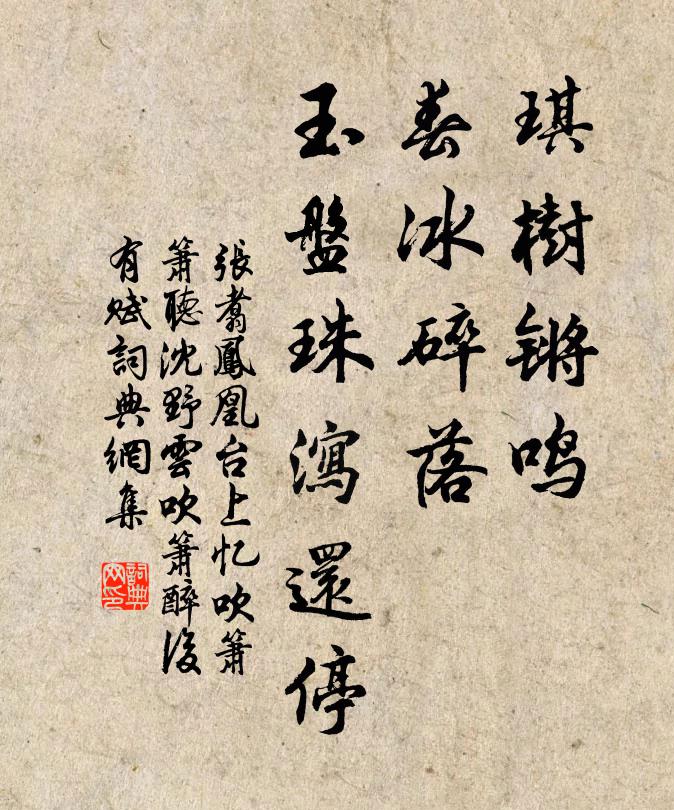 琪樹鏘鳴
春冰碎落
玉盤珠瀉還停
張翥鳳凰台上忆吹簫
簫聽沈野雲吹簫醉後
有賦詞典網集
詞典
网印